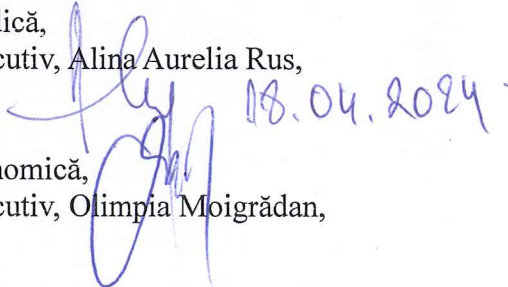 dică,
cutiv, Alina Aurelia Rus,
18.04.2024
nomică,
cutiv, Olimpia Moigrădan,